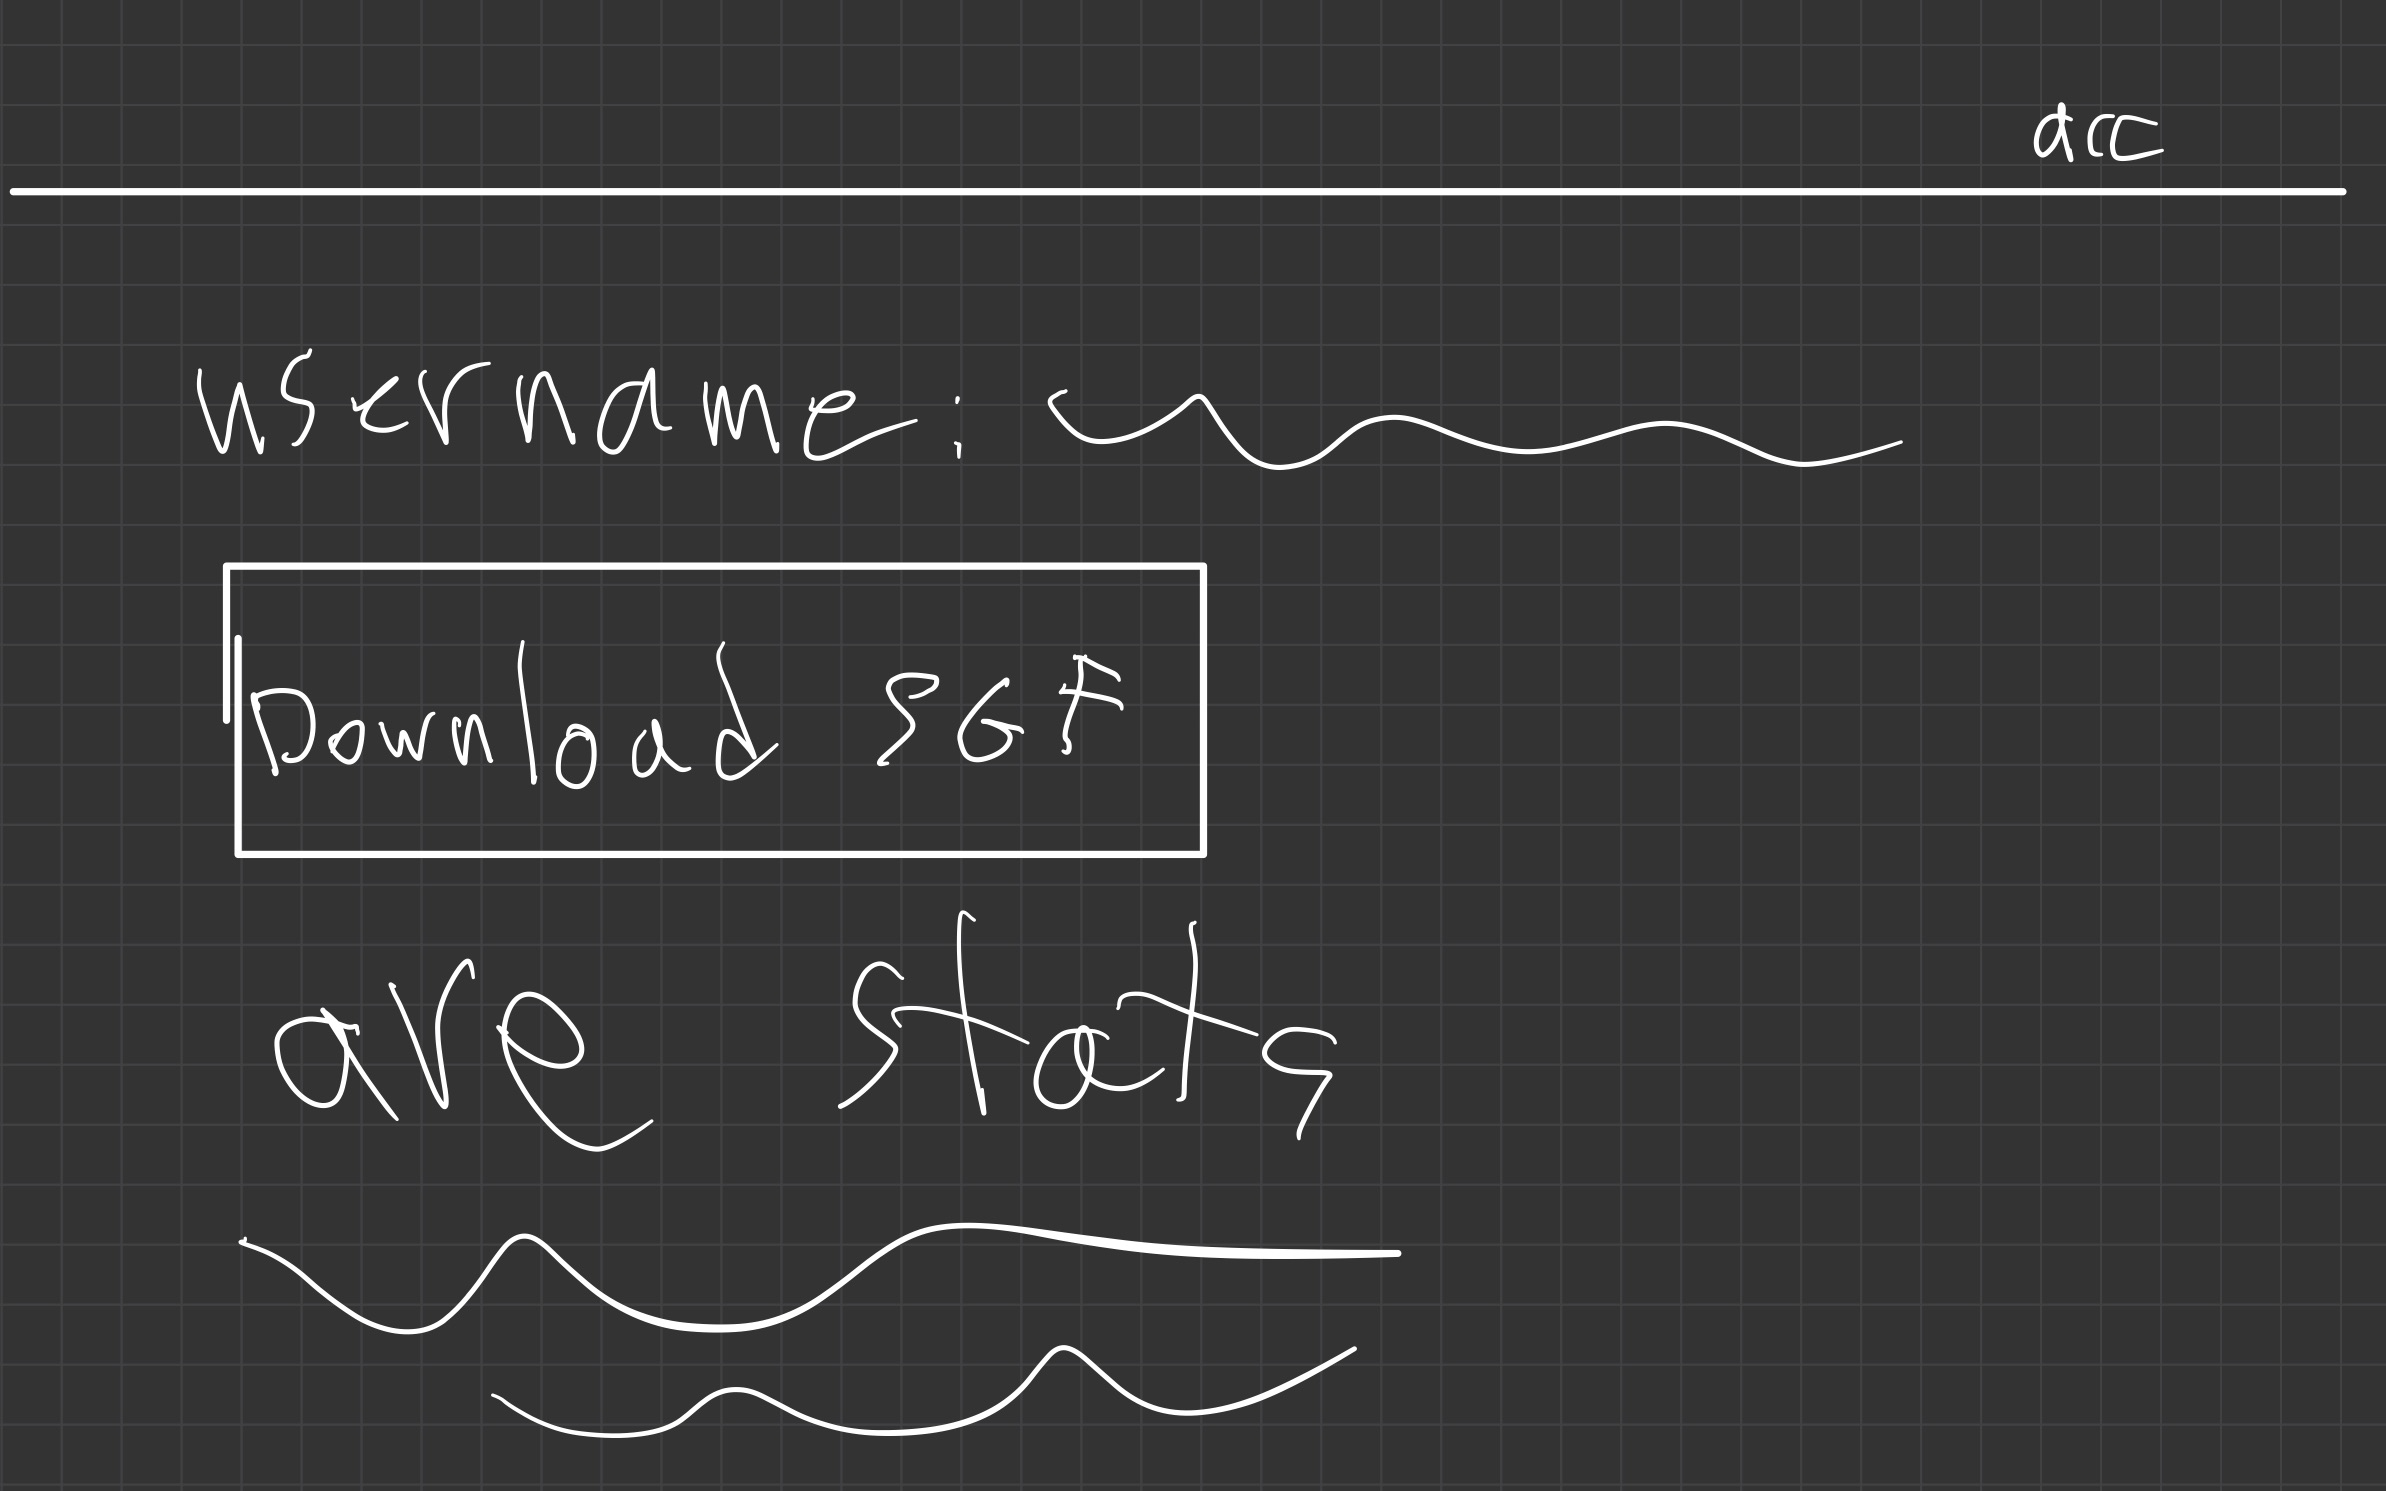 acc
username:
Download SGF
ave stats